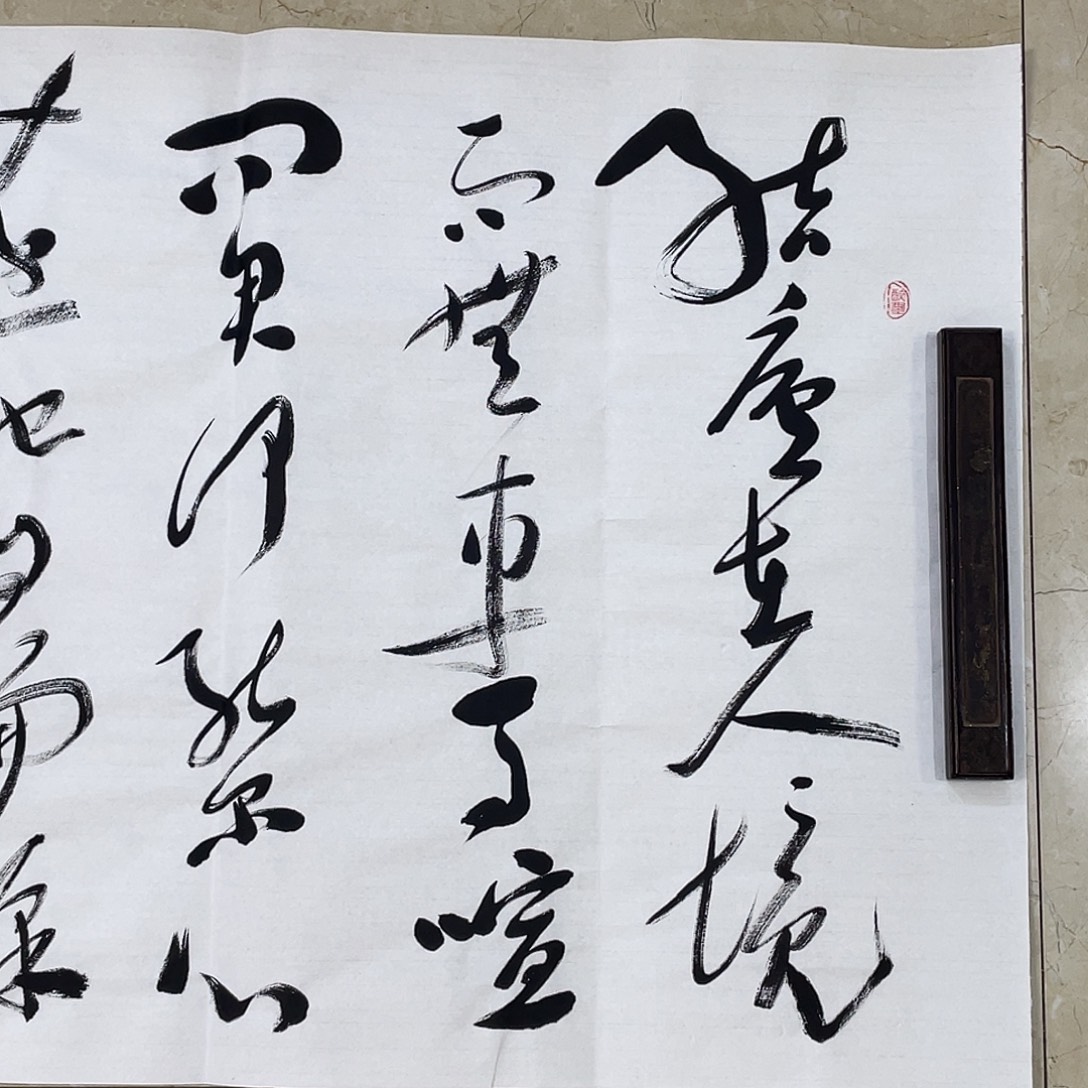 結廬在人境
而無車馬喧
問君何能爾心
遠地自偏采